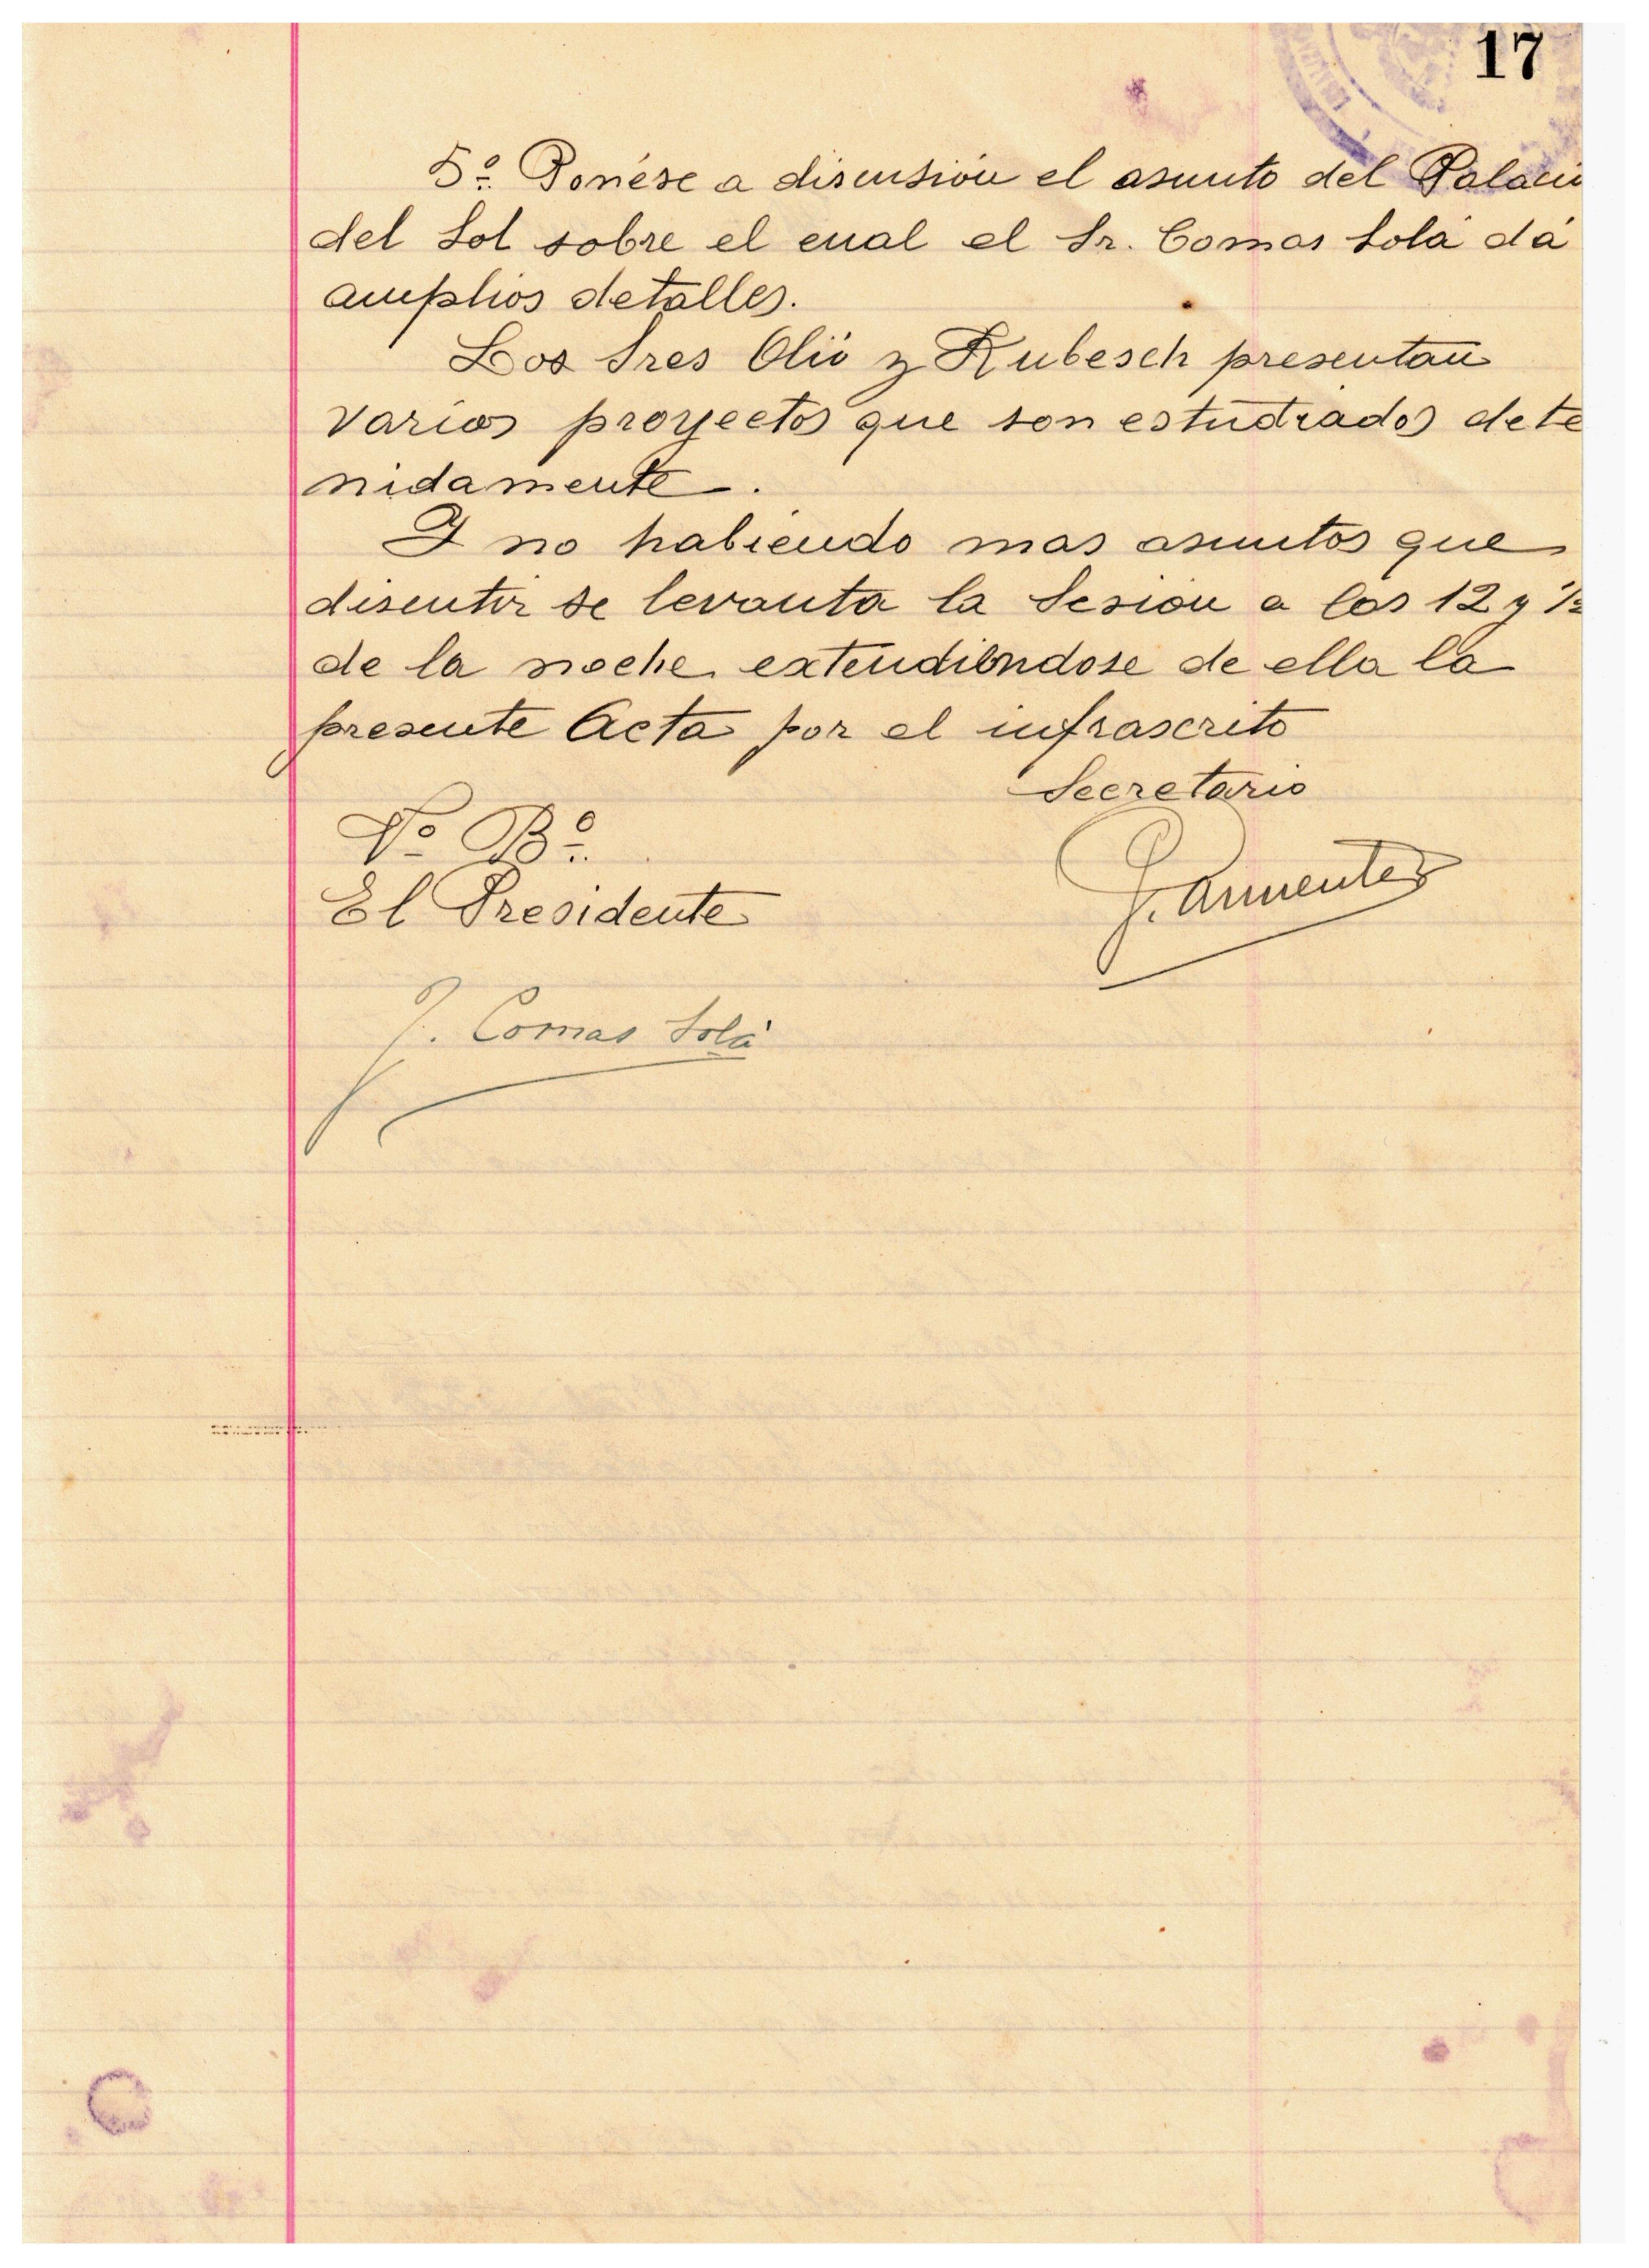 17
5º. Ponése a discusión el asunto del Palacio
del Sol sobre el cual el Sr. Comas Solá dá
amplios detalles.
Los Sres Olió y Rubesch presentan
varios proyectos que son estudiados dete
nidamente.
Y no habiendo mas asuntos que
discutir se levanta la Sesion a las 12 y ½
de la noche extendiéndose de ella la
presente Acta por el infrascrito
Secretario
Vº Bº.
El Presidente
J. Armenter
J. Comas Solá